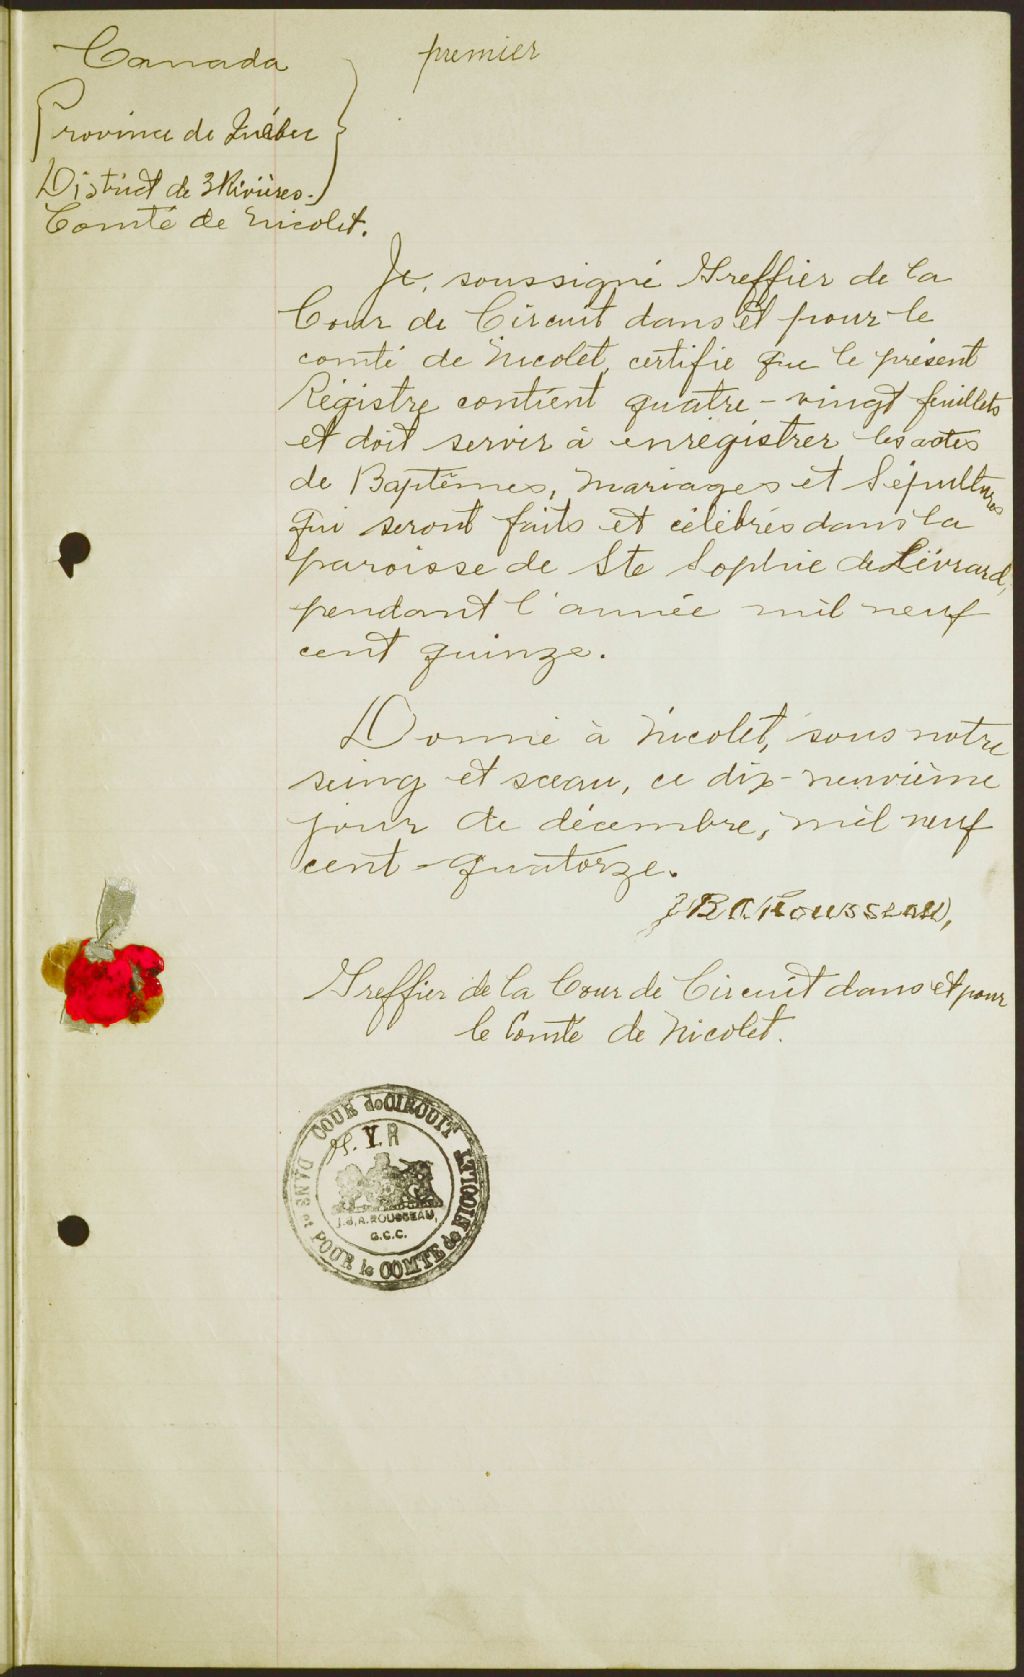 Canada
premier
Province de Québec
District de 3 Rivières.
Comté de Nicolet.
Je, soussigné Greffier de la
Cour de Circuit dans et pour le
comté de Nicolet, certifie que le présent
Régistre contient quatre-vingt feuillets
et doit servir à enrégistrer les actes
de Baptêmes, Mariages et Sépultures
qui seront faits et célébrés dans la
paroisse de Ste Sophie de Lévrard,
pendant l'année mil neuf
cent quinze.
Donné à Nicolet, sous notre
seing et sceau, ce dix-neuvième
jour de décembre, mil neuf
cent-quatorze.
JBA Rousseau,
Greffier de la Cour de Circuit dans et pour
le Comté de Nicolet.
COUR de CIRCUIT
DANS et POUR le COMTE de NICOLET
J.B.A. ROUSSEAU,
G.C.C.